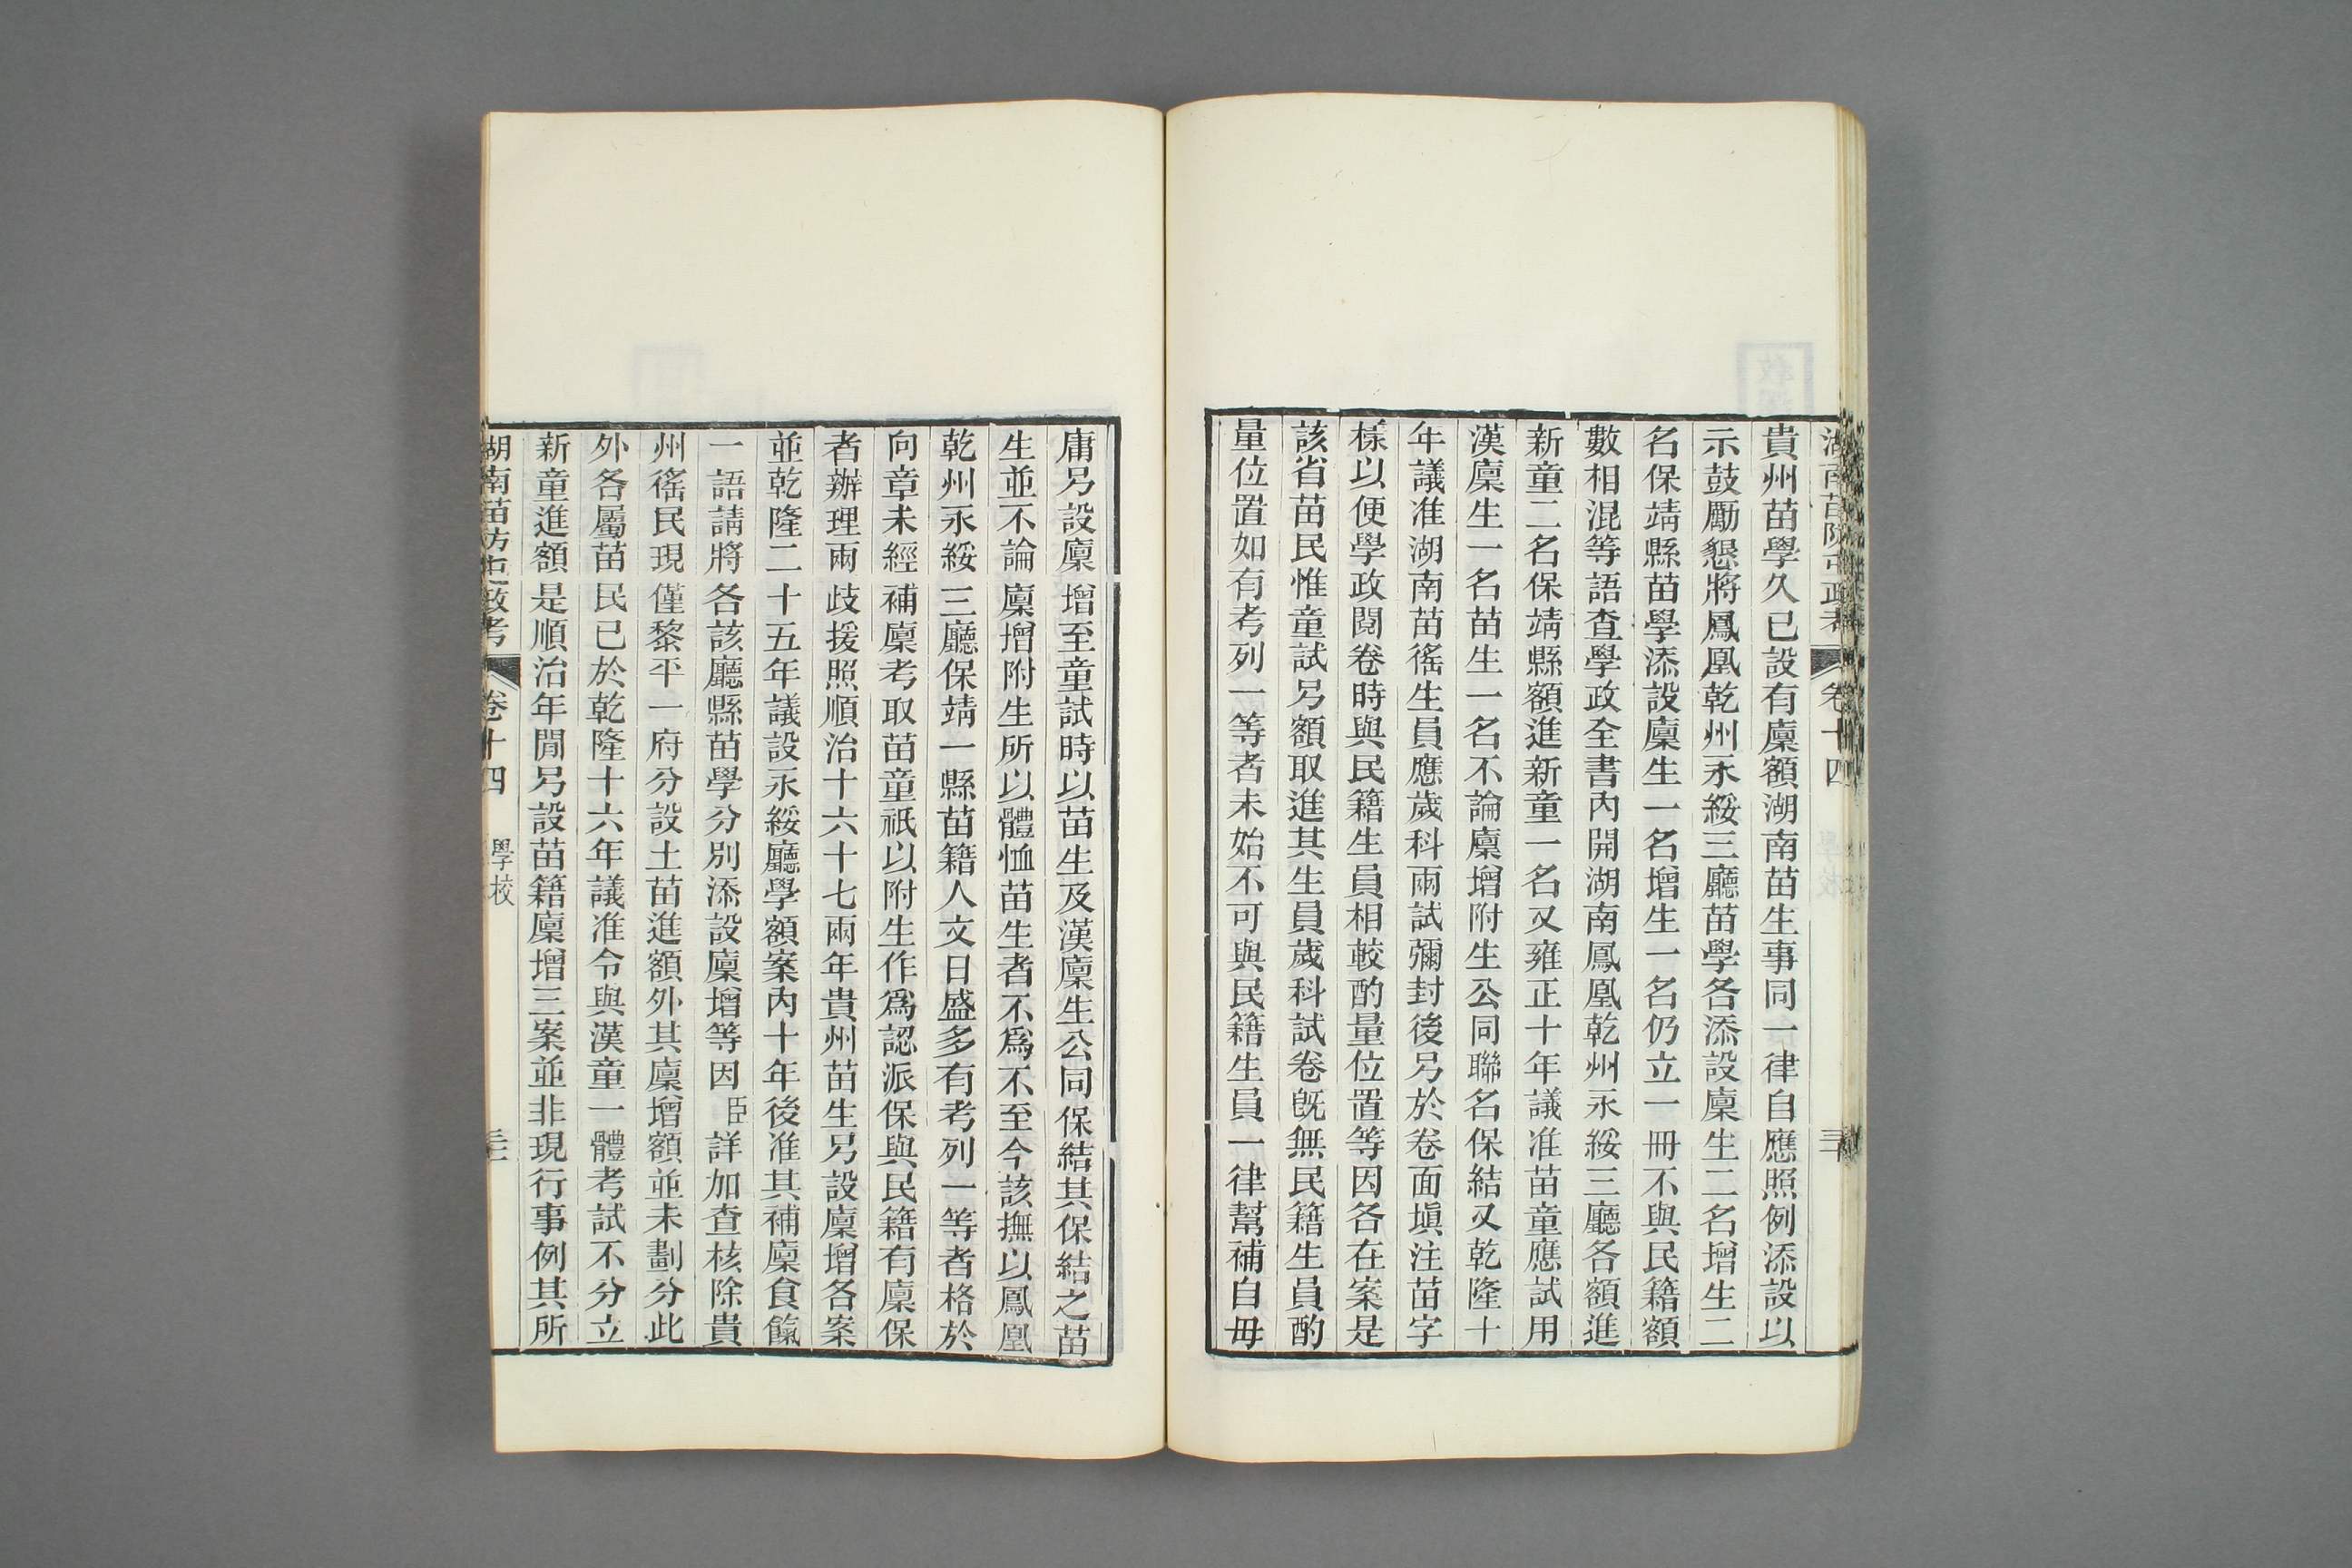 湖南苗防屯政考 卷十四
貴州苗學久已設有廩額湖南苗生事同一律自應照例添設以
示鼓勵懇將鳳凰乾州永綏三廳苗學各添設廩生二名增生二
名保靖縣苗學添設廩生一名增生一名仍立一冊不與民籍額
數相混等語查學政全書內開湖南鳳凰乾州永綏三廳各額進
新童二名保靖縣額進新童一名又雍正十年議准苗童應試用
漢廩生一名苗生一名不論廩增附生公同聯名保結又乾隆十
年議准湖南苗徭生員應歲科兩試彌封後另於卷面塡注苗字
樣以便學政閱卷時與民籍生員相較酌量位置等因各在案是
該省苗民惟童試另額取進其生員歲科試卷旣無民籍生員酌
量位置如有考列一等者未始不可與民籍生員一律幫補自毋
庸另設廩增至童試時以苗生及漢廩生公同保結其保結之苗
生並不論廩增附生所以體恤苗生者不爲不至今該撫以鳳凰
乾州永綏三廳保靖一縣苗籍人文日盛多有考列一等者格於
向章未經補廩考取苗童祇以附生作爲認派保與民籍有廩保
者辦理兩歧援照順治十六十七兩年貴州苗生另設廩增各案
並乾隆二十五年議設永綏廳學額案內十年後准其補廩食餼
一語請將各該廳縣苗學分別添設廩增等因臣詳加查核除貴
州徭民現僅黎平一府分設土苗進額外其廩增額並未劃分此
外各屬苗民已於乾隆十六年議准令與漢童一體考試不分立
新童進額是順治年閒另設苗籍廩增三案並非現行事例其所
湖南苗防屯政考 卷十四 學校